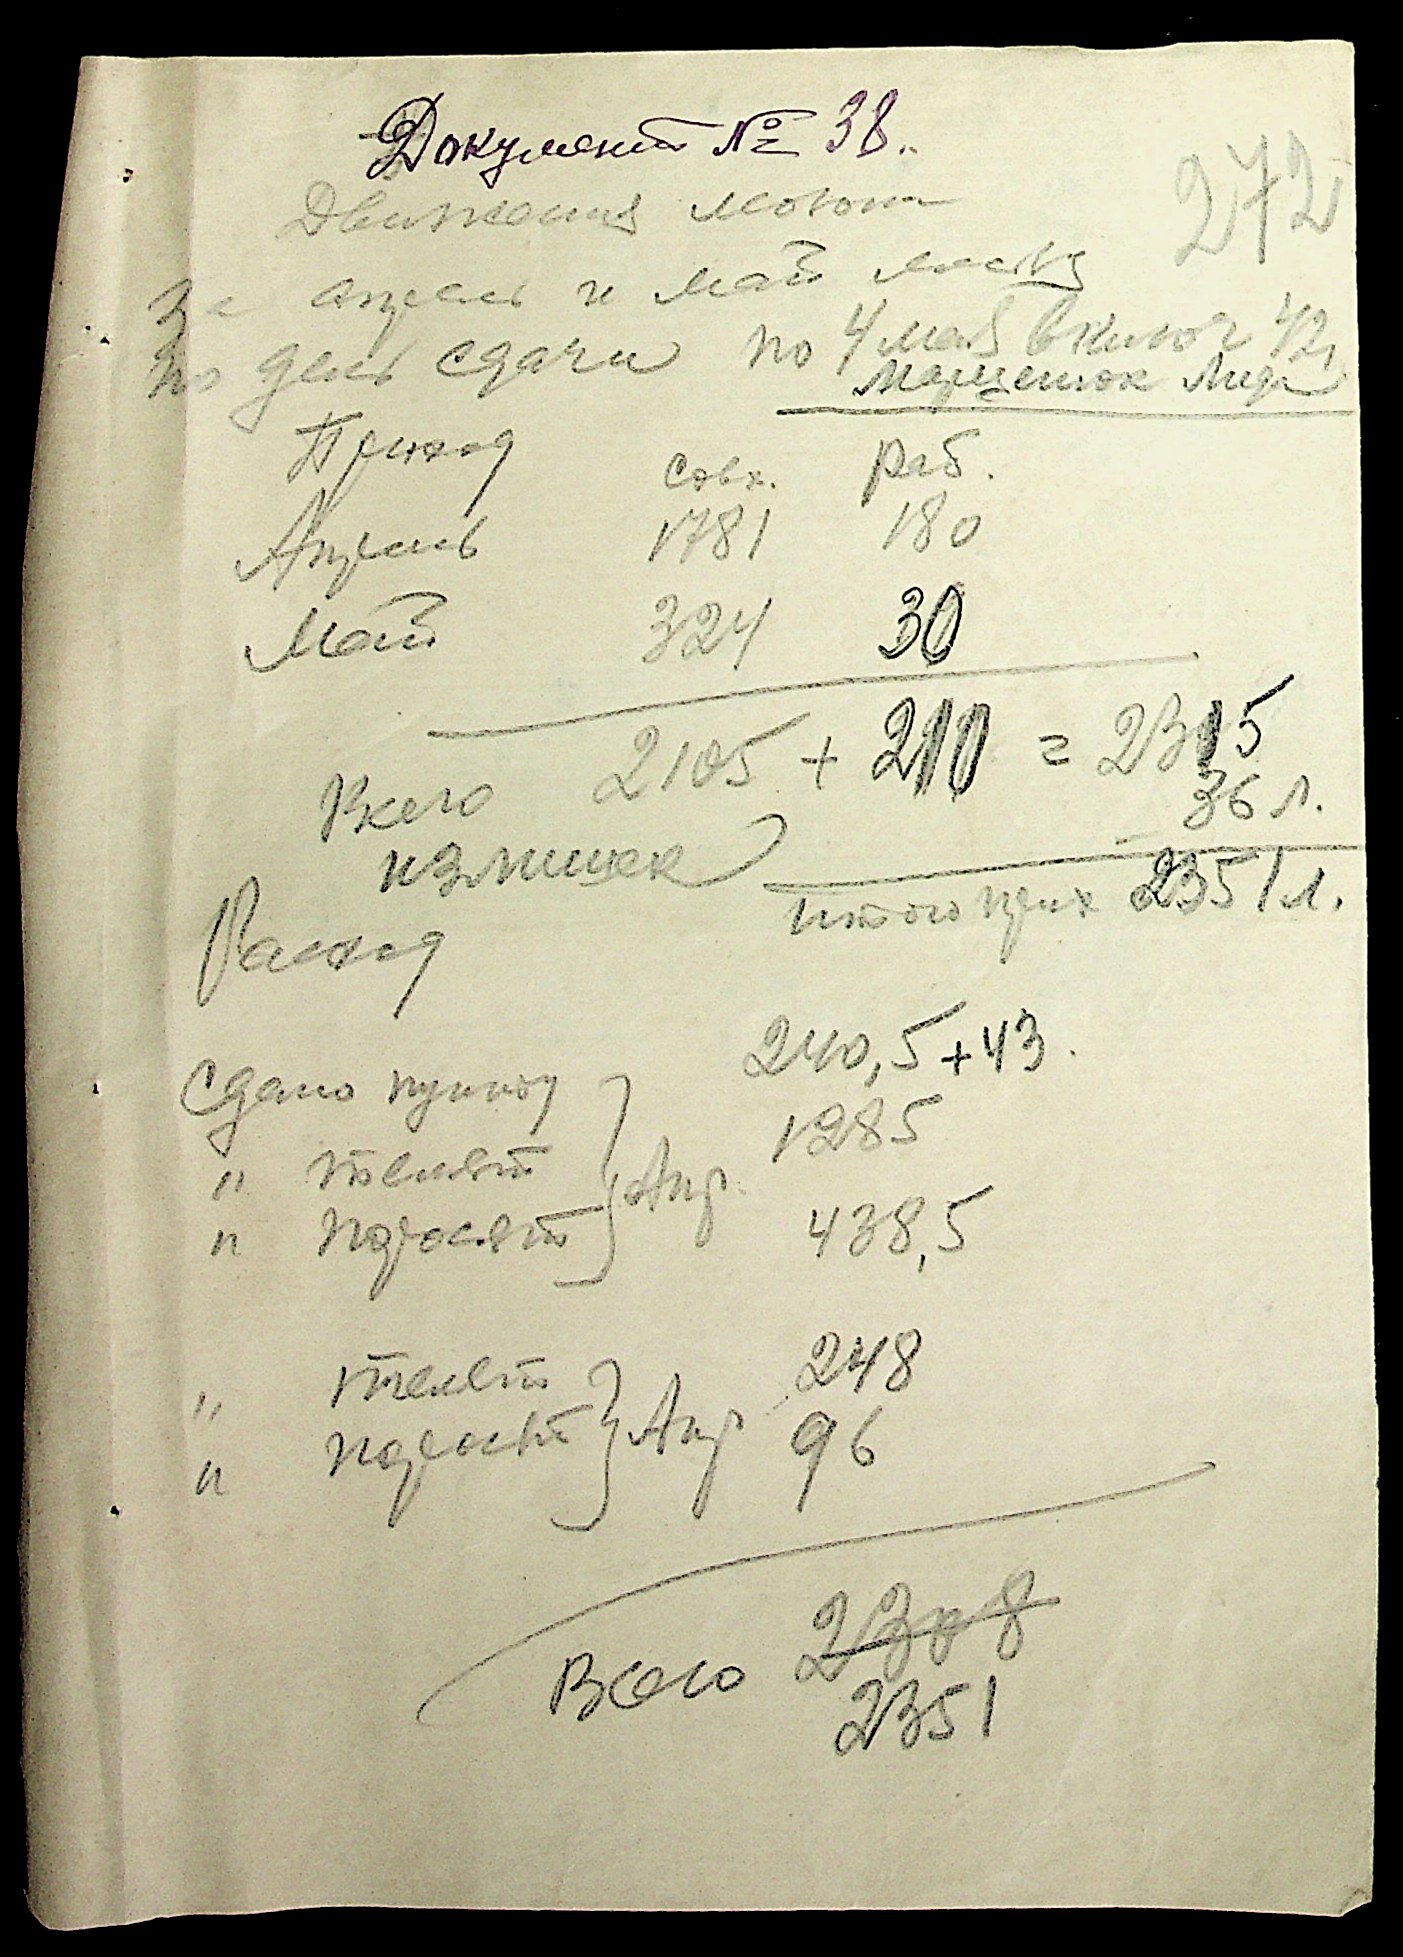 Документ № 38.
272
Движения молока
За апрель и май месяц
по день сдачи по 4 мая включ 42,
Лида
Приход совх. раб.
Апрель 1781 180
Май 324 30
Всего 2105 + 210 = 2315
излишек 36 л.
итого прих 2351 л.
Расход
Сдано пункту 240,5 + 43.
" телят 1285
" поросят Апр. 438,5
" телят 248
" поросят Апр 96
Всего 2308
2351